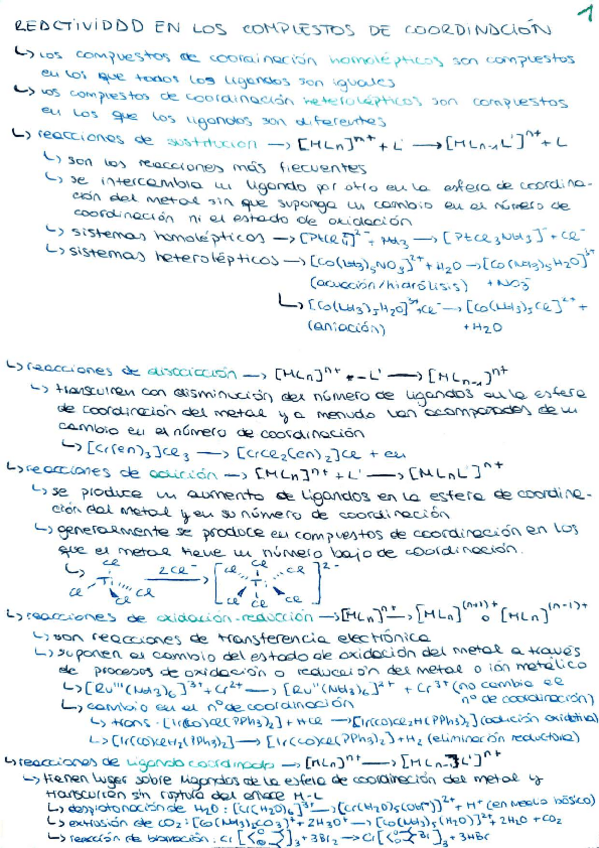 REACTIVIDAD EN LOS COMPUESTOS DE COORDINACIÓN
1
↳ los compuestos de coordinación homolépticos son compuestos
en los que todos los ligandos son iguales
↳ los compuestos de coordinación heterolépticos son compuestos
en los que los ligandos son diferentes
↳ reacciones de sustitución → [MLn]ⁿ⁺ + L' → [MLn-1L']ⁿ⁺ + L
↳ son las reacciones más frecuentes
↳ se intercambia un ligando por otro en la esfera de coordina-
ción del metal sin que suponga un cambio en el número de
coordinación ni el estado de oxidación
↳ sistemas homolépticos → [PtCl₄]²⁻ + NH₃ → [PtCl₃NH₃]⁻ + Cl⁻
↳ sistemas heterolépticos → [Co(NH₃)₅NO₃]²⁺ + H₂O → [Co(NH₃)₅H₂O]³⁺
(acuación/hidrólisis) + NO₃⁻
↳ [Co(NH₃)₅H₂O]³⁺ + Cl⁻ → [Co(NH₃)₅Cl]²⁺ +
(aniación) + H₂O
↳ reacciones de disociación → [MLn]ⁿ⁺ - L' → [MLn-1]ⁿ⁺
↳ transcurren con disminución del número de ligandos en la esfera
de coordinación del metal y a menudo van acompañados de un
cambio en el número de coordinación
↳ [Cr(en)₃]Cl₃ → [CrCl₂(en)₂]Cl + en
↳ reacciones de adición → [MLn]ⁿ⁺ + L' → [MLnL']ⁿ⁺
↳ se produce un aumento de ligandos en la esfera de coordina-
ción del metal y en su número de coordinación
↳ generalmente se produce en compuestos de coordinación en los
que el metal tiene un número bajo de coordinación.
↳ Cl Cl Ti Cl Cl 2Cl⁻ → [Cl Cl Cl Ti Cl Cl Cl]²⁻
↳ reacciones de oxidación-reducción → [MLn]ⁿ⁺ → [MLn]⁽ⁿ⁺¹⁾⁺ o [MLn]⁽ⁿ⁻¹⁾⁺
↳ son reacciones de transferencia electrónica
↳ suponen el cambio del estado de oxidación del metal a través
de procesos de oxidación o reducción del metal o ión metálico
↳ [Ru'''(NH₃)₆]³⁺ + Cr²⁺ → [Ru''(NH₃)₆]²⁺ + Cr³⁺ (no cambia el
nº de coordinación)
↳ cambio en el nº de coordinación
↳ trans-[Ir(CO)Cl(PPh₃)₂] + HCl → [Ir(CO)Cl₂H(PPh₃)₂] (adición oxidativa)
↳ [Ir(CO)ClH₂(PPh₃)₂] → [Ir(CO)Cl(PPh₃)₂] + H₂ (eliminación reductora)
↳ reacciones de ligando coordinado → [MLn]ⁿ⁺ → [MLn-1L']ⁿ⁺
↳ tienen lugar sobre ligandos de la esfera de coordinación del metal y
transcurren sin ruptura del enlace M-L
↳ desprotonación de H₂O: [Cr(H₂O)₆]³⁺ → [Cr(H₂O)₅(OH⁻)]²⁺ + H⁺ (en medio básico)
↳ extrusión de CO₂: [Co(NH₃)₅CO₃]⁺ + 2H₃O⁺ → [Co(NH₃)₅(H₂O)]³⁺ + 2H₂O + CO₂
↳ reacción de bromación: Cr[ ]₃ + 3Br₂ → Cr[ Br]₃ + 3HBr